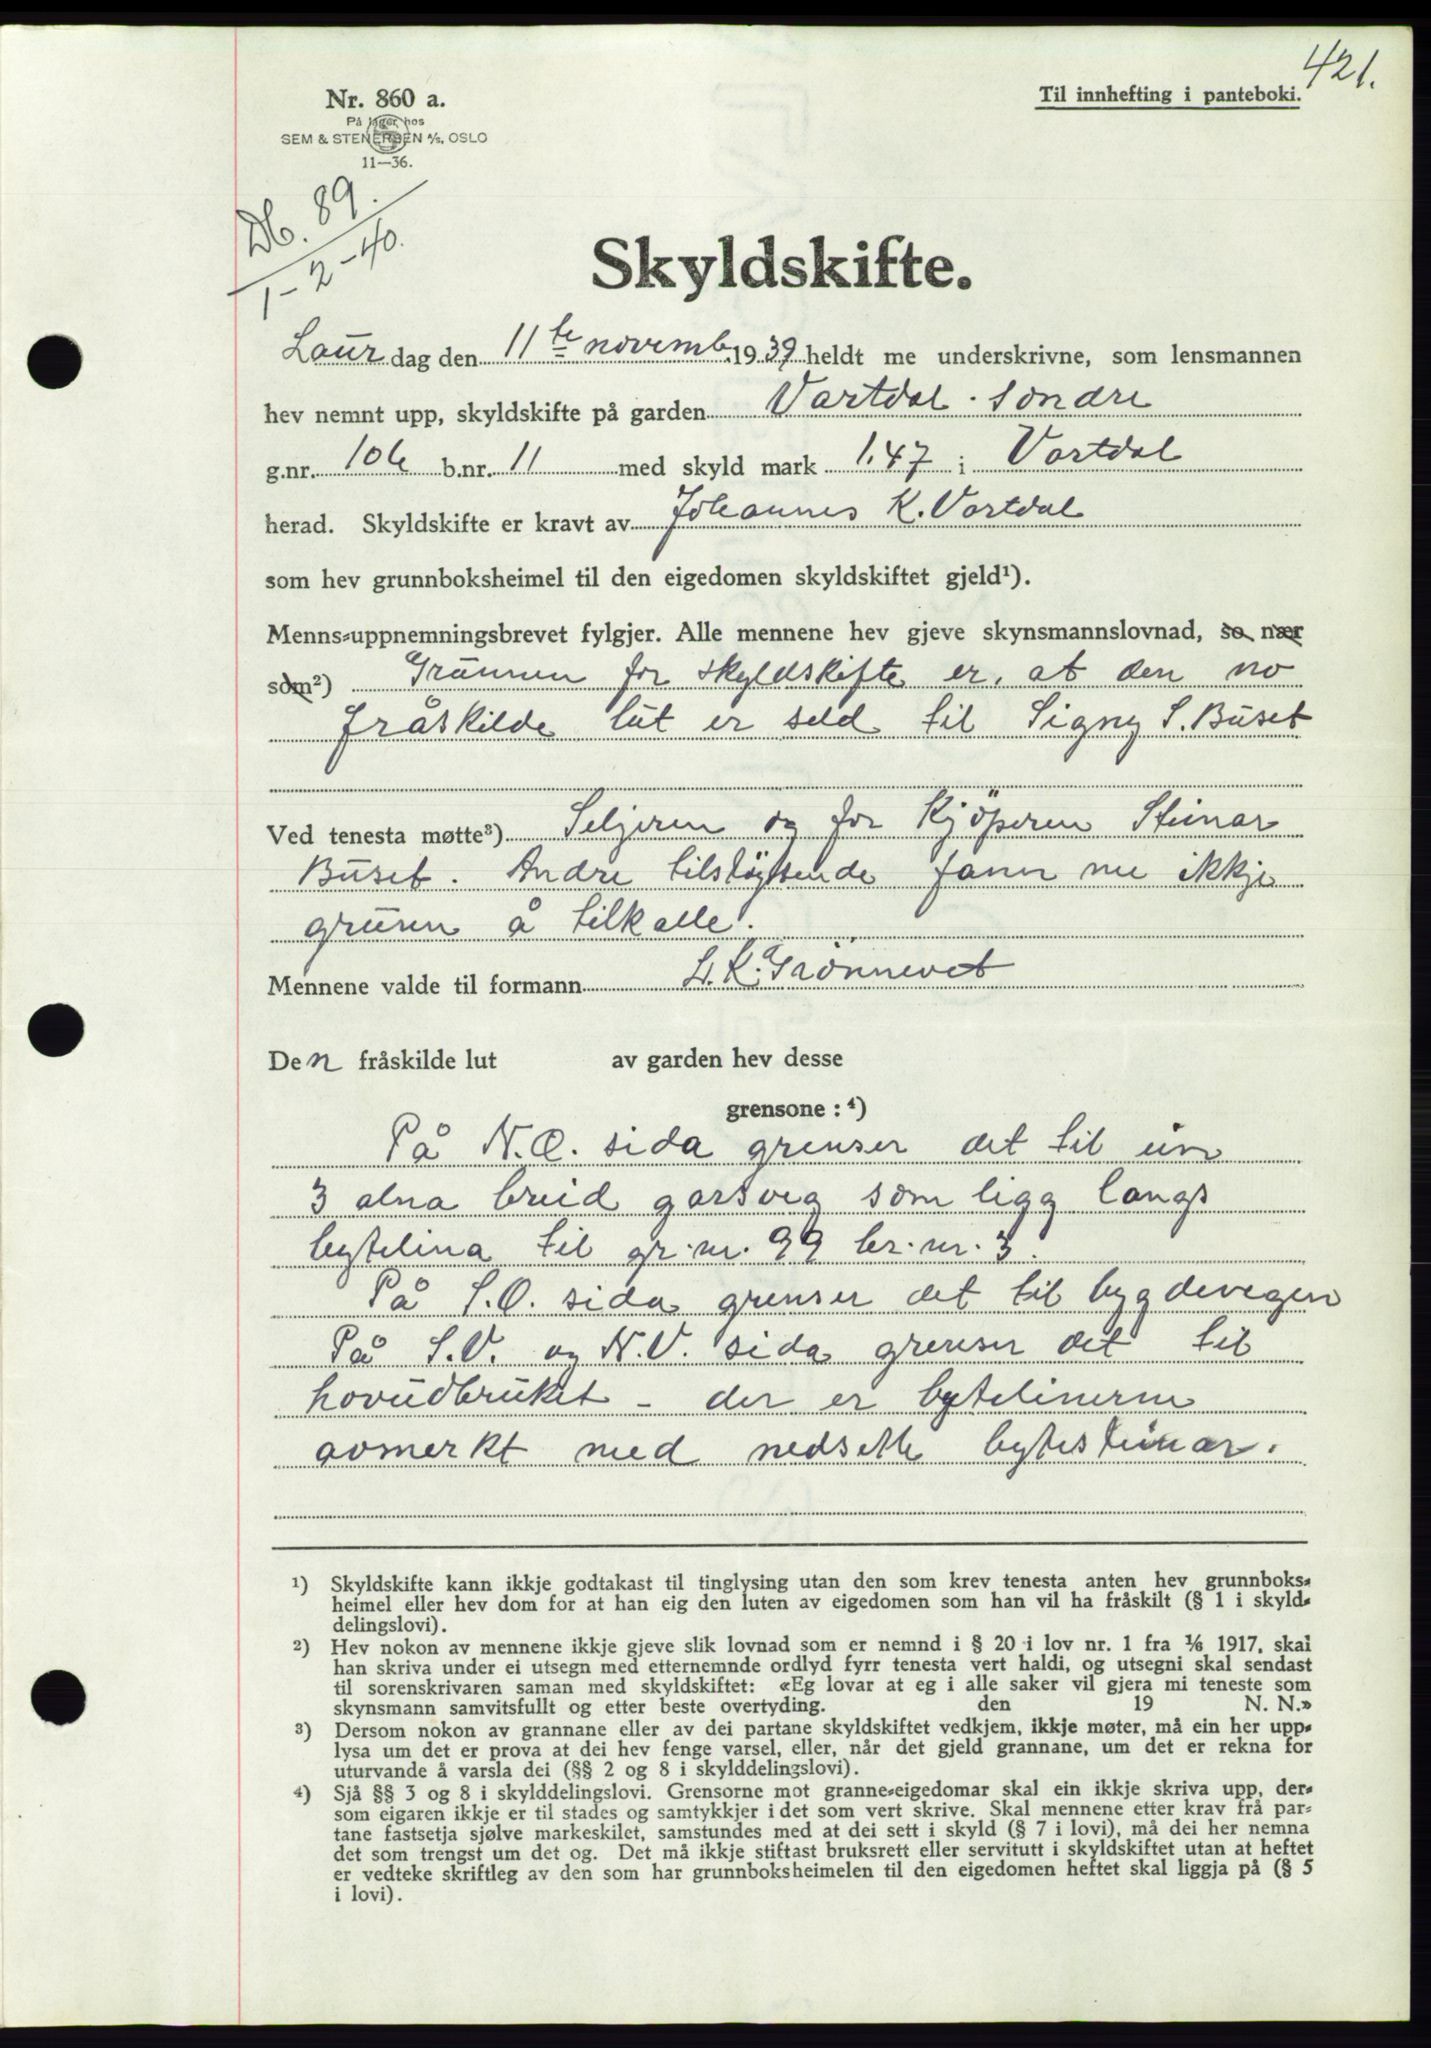 421.
Nr. 860 a.
Til innhefting i panteboki.
På lager hos
SEM & STENERSEN A/S, OSLO
11—36.
Db. 89.
1-2-40.
Skyldskifte.
Laur dag den 11te novemb. 1939 heldt me underskrivne, som lensmannen
hev nemnt upp, skyldskifte på garden Vartdal søndre
g.nr. 106 b.nr. 11 med skyld mark 1.47 i Vartdal
herad. Skyldskifte er kravt av Johannes K. Vartdal
som hev grunnboksheimel til den eigedomen skyldskiftet gjeld¹).
Menns-uppnemningsbrevet fylgjer. Alle mennene hev gjeve skynsmannslovnad, so nær
som²) Grunnen for skyldskifte er, at den no
fråskilde lut er seld til Signy S. Buset
Ved tenesta møtte³) Seljeren og for Kjöperen Steinar
Buset. Andre tilstöytende fann me ikkje
grunn å tilkalle.
Mennene valde til formann L. K. Grönnevet
Den fråskilde lut av garden hev desse
grensone : ⁴)
På N.O. sida grenser det til ein
3 alna breid garsveg som ligg langs
bytelina til gr. nr. 99 br. nr. 3.
På S.O. sida grenser det til bygdevegen
På S.V. og N.V. sida grenser det til
hovudbruket - der er bytelinerne
avmerkt med nedsette bytesteinar.
¹) Skyldskifte kann ikkje godtakast til tinglysing utan den som krev tenesta anten hev grunnboks-
heimel eller hev dom for at han eig den luten av eigedomen som han vil ha fråskilt (§ 1 i skyld-
delingslovi).
²) Hev nokon av mennene ikkje gjeve slik lovnad som er nemnd i § 20 i lov nr. 1 fra 1/6 1917, skal
han skriva under ei utsegn med etternemnde ordlyd fyrr tenesta vert haldi, og utsegni skal sendast
til sorenskrivaren saman med skyldskiftet: «Eg lovar at eg i alle saker vil gjera mi teneste som
skynsmann samvitsfullt og etter beste overtyding. den 19 N. N.»
³) Dersom nokon av grannane eller av dei partane skyldskiftet vedkjem, ikkje møter, må ein her upp-
lysa um det er prova at dei hev fenge varsel, eller, når det gjeld grannane, um det er rekna for
uturvande å varsla dei (§§ 2 og 8 i skylddelingslovi).
⁴) Sjå §§ 3 og 8 i skylddelingslovi. Grensorne mot granne-eigedomar skal ein ikkje skriva upp, der-
som eigaren ikkje er til stades og samtykkjer i det som vert skrive. Skal mennene etter krav frå par-
tane fastsetja sjølve markeskilet, samstundes med at dei sett i skyld (§ 7 i lovi), må dei her nemna
det som trengst um det og. Det må ikkje stiftast bruksrett eller servitutt i skyldskiftet utan at heftet
er vedteke skriftleg av den som har grunnboksheimelen til den eigedomen heftet skal liggja på (§ 5
i lovi).